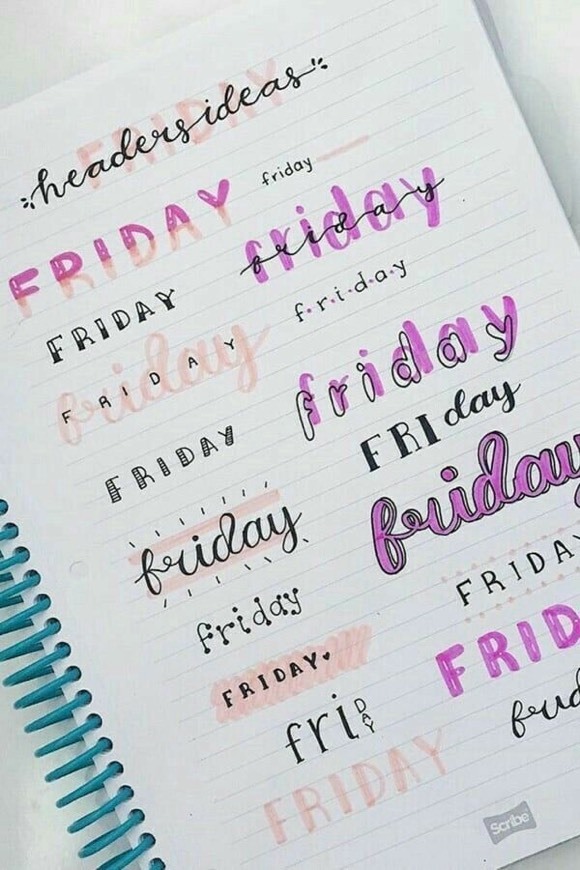 headers ideas
FRIDAY
friday
FRIDAY
friday
friday
FRIDAY
f.r.i.d.a.y
friday
FRIDAY
friday
friday
FRIDAY
FRIday
friday
friday
friday
FRIDAY
FRIDAY♥
FRID
friDAY
FRIDAY
Scribe